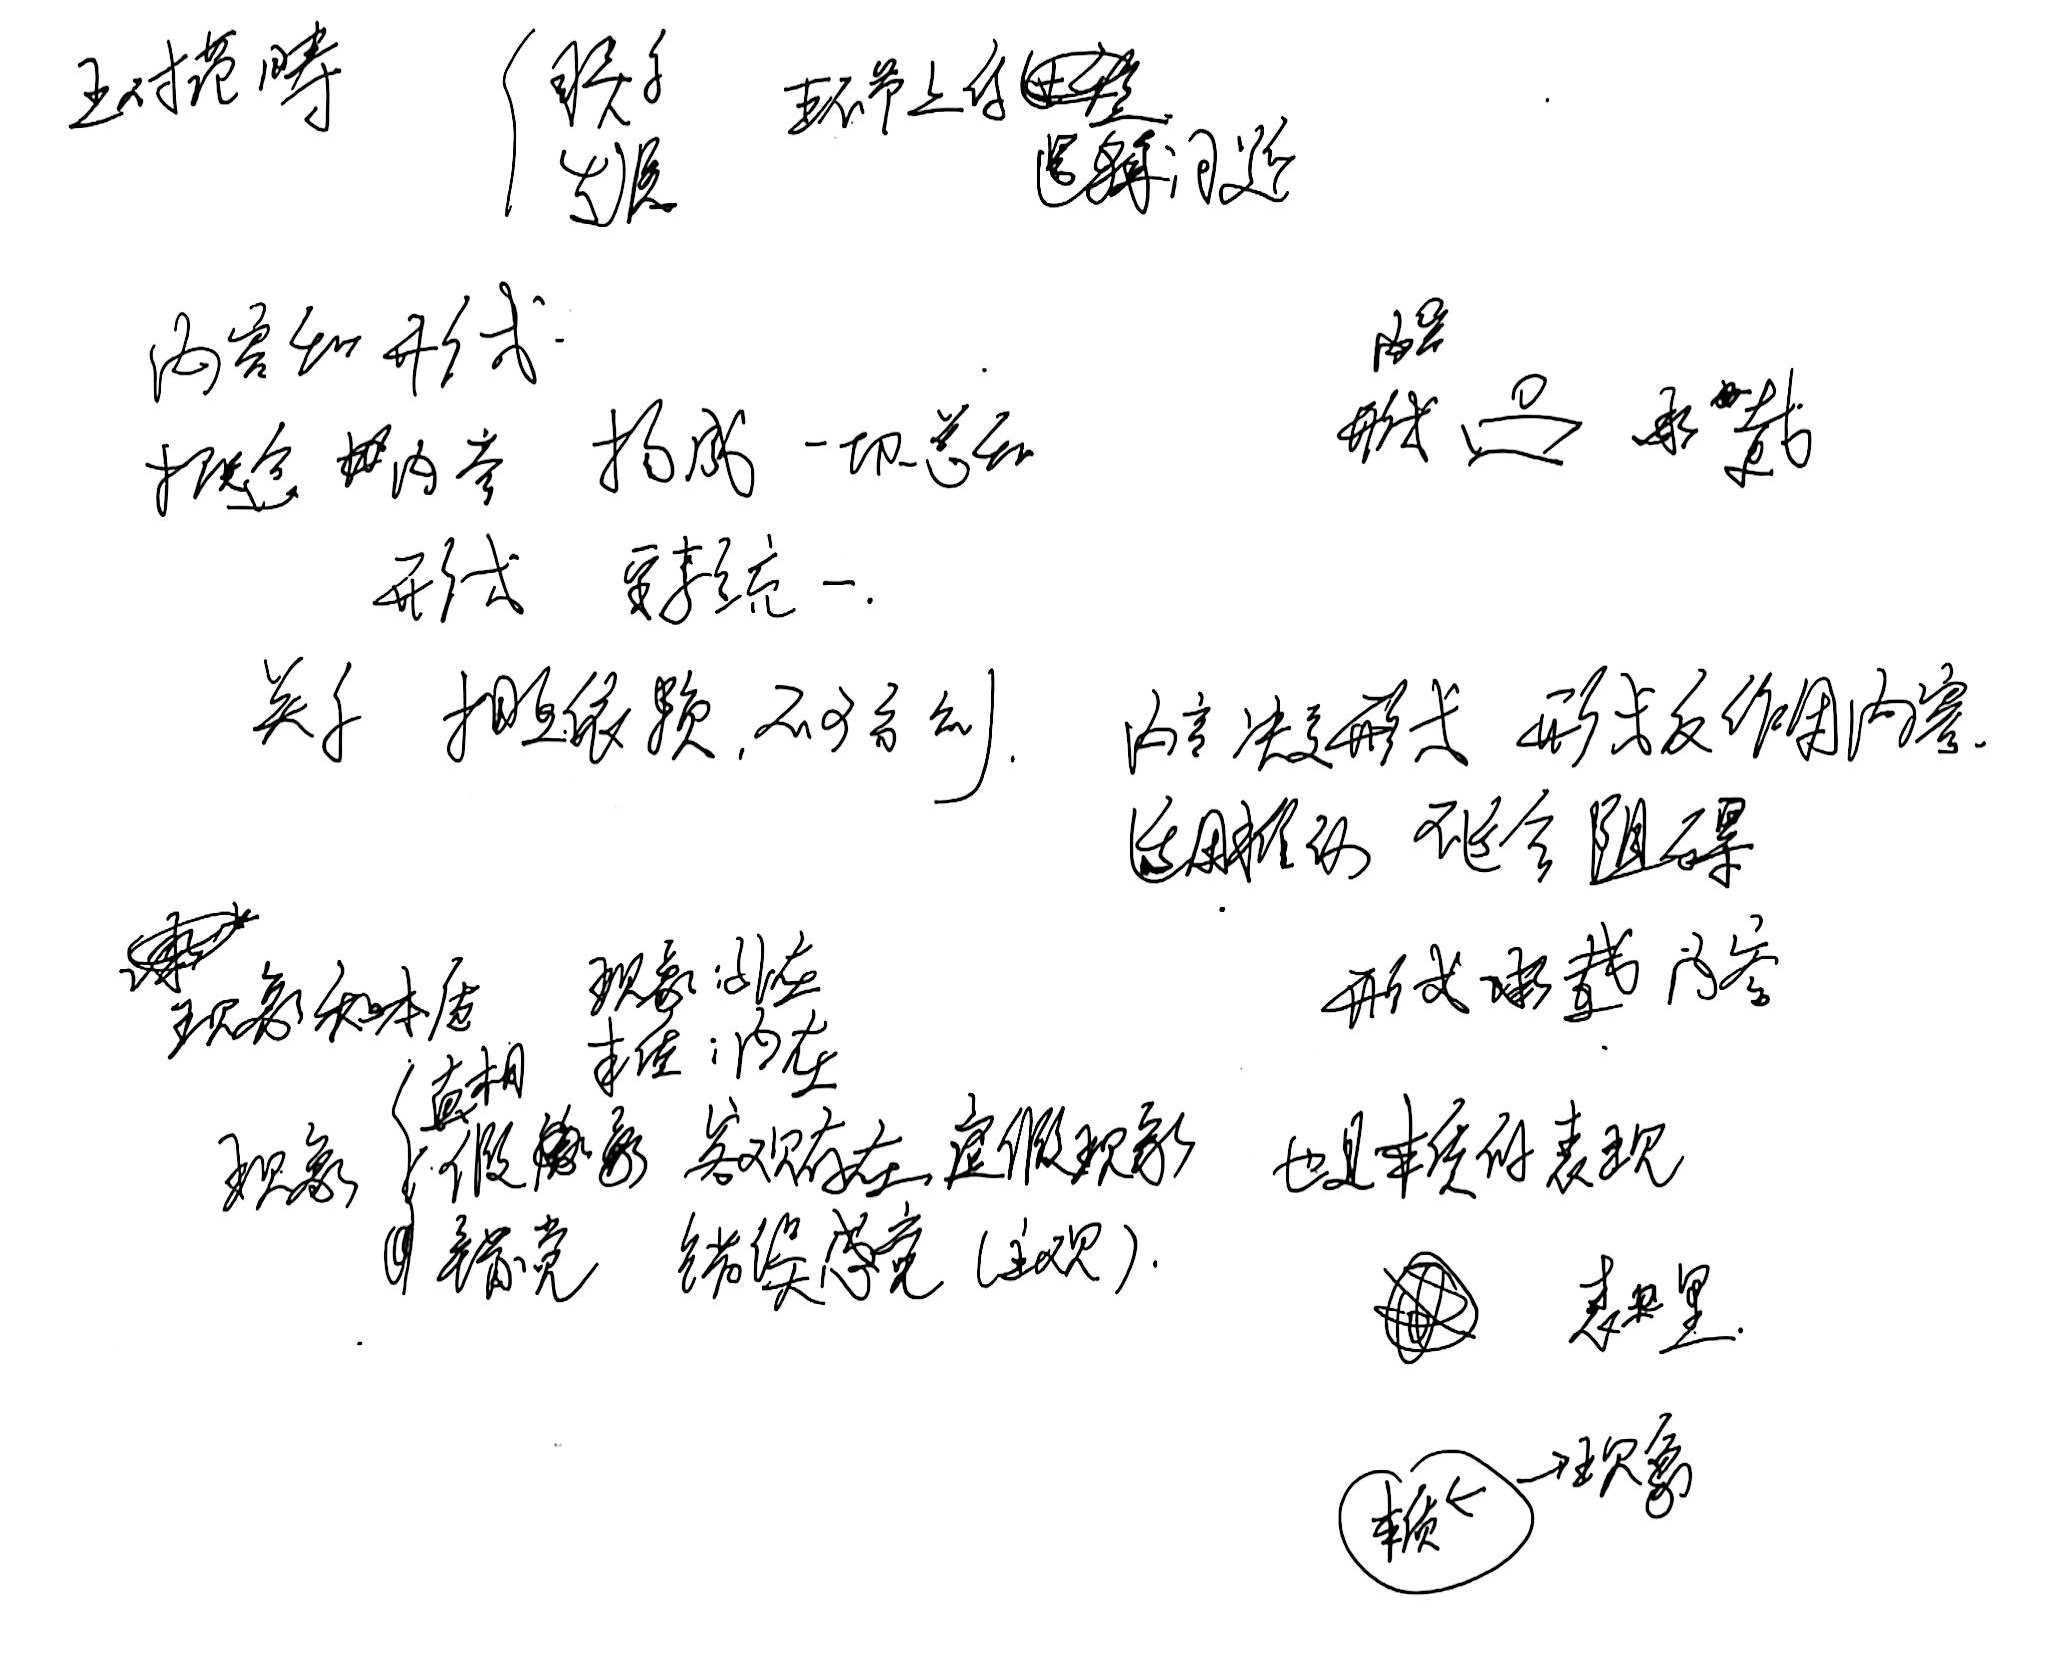 五对范畴 联系 发展 环节上的
逻辑问题
内容和形式
内容
形式 承载
概念 内容 构成一切总和
形式 要素统一.
关系 相互依赖,不可分割. 内容决定形式 形式反作用内容.
适用推动 不适合阻碍
形式承载内容
现象和本质 现象:外在
本质:内在
现象 真相
假象 客观存在 虚假现象 也是本质的表现
错觉 错误感觉(主观).
表里.
本质 → 现象